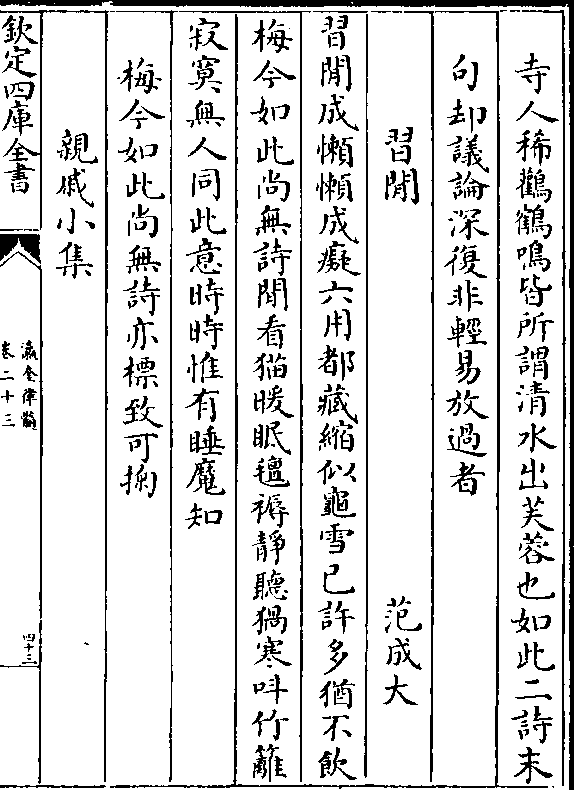 寺人稀鸛鶴鳴皆所謂清水出芙蓉也如此二詩末
句却議論深復非輕易放過者
習閒　范成大
習閒成懶懶成癡六用都藏縮似龜雪已許多猶不飲
梅今如此尚無詩閒看猫暖眠氊褥靜聽猧寒呌竹籬
寂寞無人同此意時時惟有睡魔知
梅今如此尚無詩亦標致可掬
親戚小集
欽定四庫全書
瀛奎律髓
卷二十三
四十三